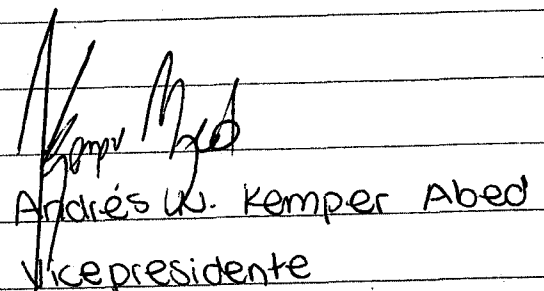 Andrés W. Kemper Abed
Vicepresidente